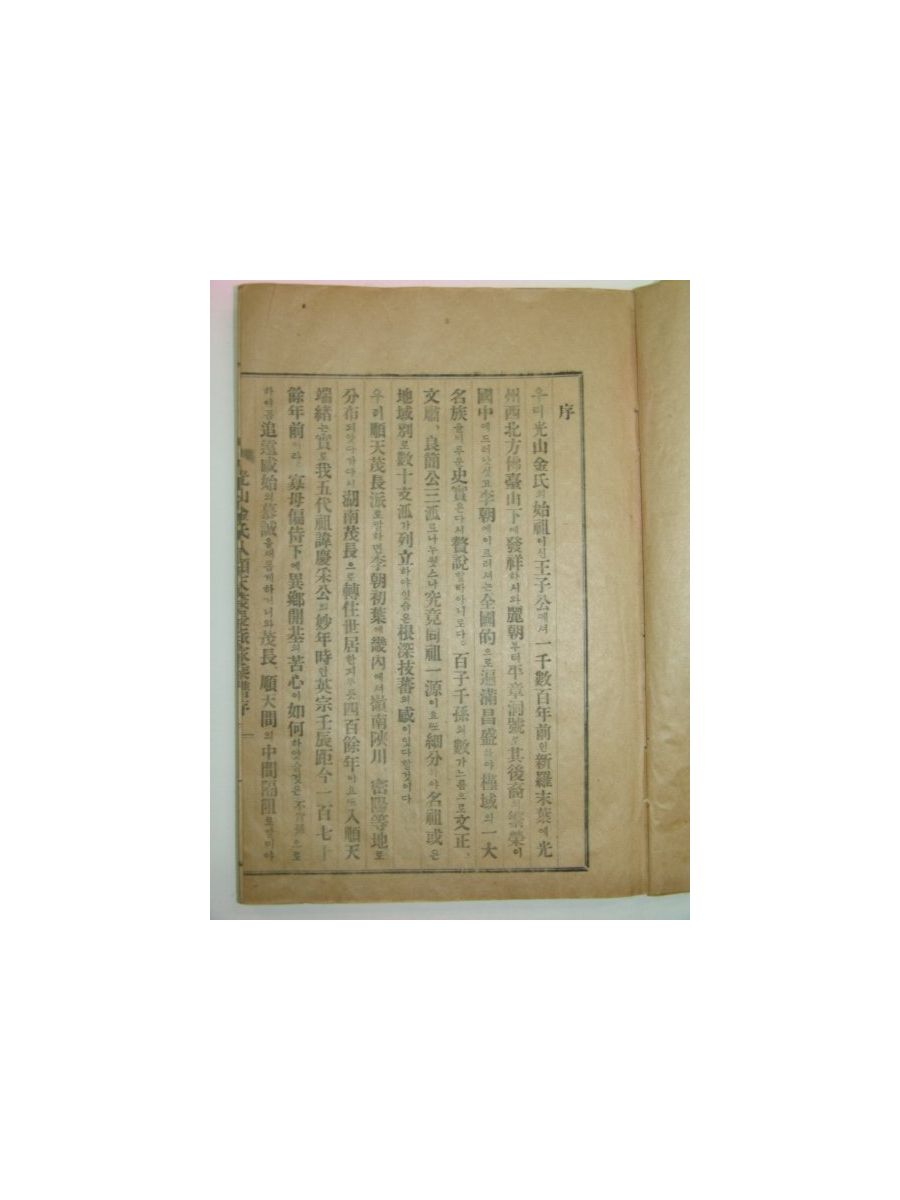 序
우리光山金氏의始祖이신王子公에셔一千數百年前인新羅末葉에光
州西北方佛臺山下에發祥하시와麗朝부터平章洞號로其後裔의繁榮이
國中에드러낫섯고李朝에이르러셔는全國的으로遍滿昌盛하야槿域의一大
名族을이루운史實은다시贅說할바아니로다。百子千孫의數가느름으로文正、
文肅、良簡公三派르나누웟스나究竟同祖一源이요또細分하야名祖或은
地域別로數十支派가列立하야잇슴은根深技蕃의感이잇다할것이다
우리順天茂長派로말하면李朝初葉에畿內에셔嶺南陜川、密陽等地로
分布되얏다가다시湖南茂長으로轉住世居한지于今四百餘年이요또入順天
端緖는實로我五代祖諱慶采公의妙年時인英宗壬辰距今一百七十
餘年前이라。寡母偏侍下에異鄕開基의苦心이如何하얏슬것은不肖孫으로
하야곰追遠感始의慕誠을새롭게하거니와茂長、順天間의中間隔阻로말미아